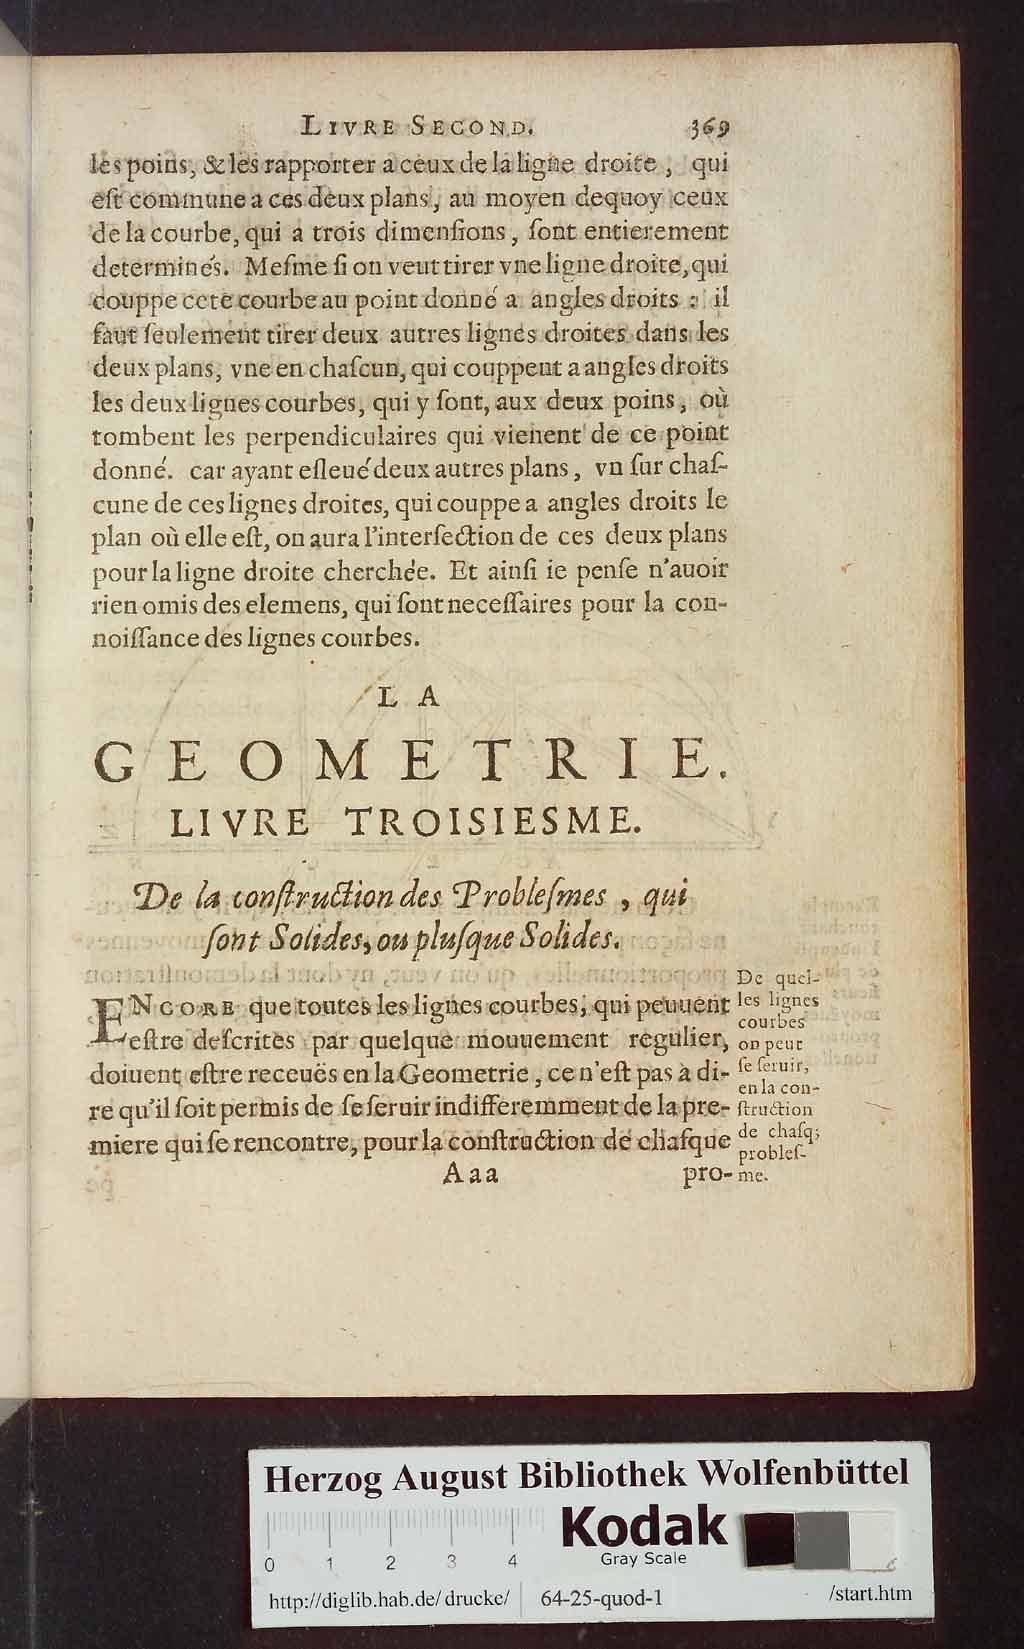 LIVRE SECOND. 369
les poins, & les rapporter a ceux de la ligne droite, qui
eſt commune a ces deux plans, au moyen dequoy ceux
de la courbe, qui a trois dimenſions, ſont entierement
determinés. Meſme ſi on veut tirer vne ligne droite, qui
couppe cete courbe au point donné a angles droits : il
faut ſeulement tirer deux autres lignes droites dans les
deux plans, vne en chaſcun, qui couppent a angles droits
les deux lignes courbes, qui y ſont, aux deux poins, où
tombent les perpendiculaires qui vienent de ce point
donné. car ayant eſleué deux autres plans, vn ſur chaſ-
cune de ces lignes droites, qui couppe a angles droits le
plan où elle eſt, on aura l'interſection de ces deux plans
pour la ligne droite cherchée. Et ainſi ie penſe n'auoir
rien omis des elemens, qui ſont neceſſaires pour la con-
noiſſance des lignes courbes.
LA
GEOMETRIE.
LIVRE TROISIESME.
De la conſtruction des Probleſmes, qui
ſont Solides, ou pluſque Solides.
ENCORE que toutes les lignes courbes, qui peuuent
eſtre deſcrites par quelque mouuement regulier,
doiuent eſtre receuës en la Geometrie, ce n'eſt pas a di-
re qu'il ſoit permis de ſe ſeruir indifferemment de la pre-
miere qui ſe rencontre, pour la conſtruction de chaſque
De quel-
les lignes
courbes
on peut
ſe ſeruir,
en la con-
ſtruction
de chaſq;
probleſ-
me.
Aaa pro-
Herzog August Bibliothek Wolfenbüttel
Kodak
Gray Scale
0 1 2 3 4
http://diglib.hab.de/drucke/ 64-25-quod-1 /start.htm